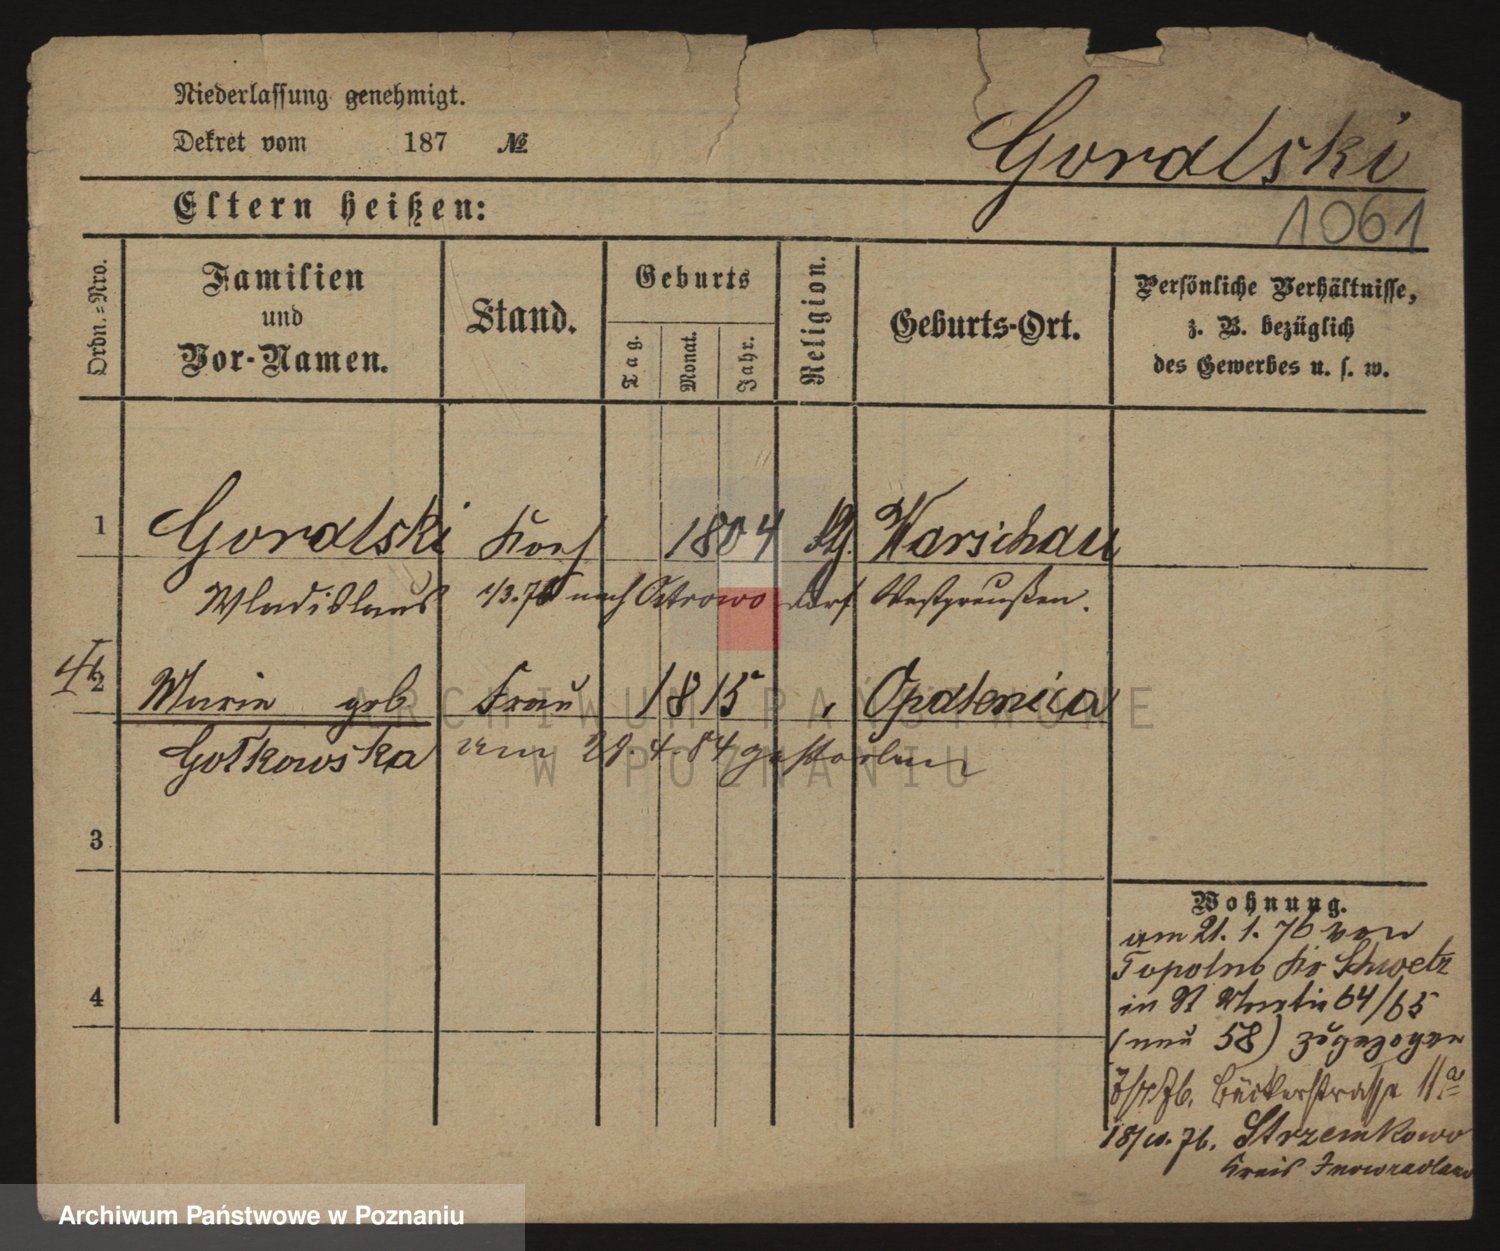 Niederlassung genehmigt.
Dekret vom 187 №
Goralski
Eltern heißen:
1061
Ordn.=Nro.
Familien und Vor-Namen.
Stand.
Geburts
Tag.
Monat.
Jahr.
Religion.
Geburts-Ort.
Persönliche Verhältnisse,
z. B. bezüglich
des Gewerbes u. s. w.
1 Goralski Koch 1804 Warschau
Wladislaus 1/3.76 nach Ostrowo Dorf Westpreußen.
2 Marie geb. Frau 1815 Opalenica
Gotkowska am 29.4.84 gestorben
3
4
Wohnung.
am 21.1.76 von
Topolno Kr Schwetz
in St Martin 64/65
(neu 58) zugezogen
Bäckerstrasse 11a
18/10.76. Strzemkowo
Kreis Inowrazlaw
ARCHIWUM PAŃSTWOWE
W POZNANIU
Archiwum Państwowe w Poznaniu